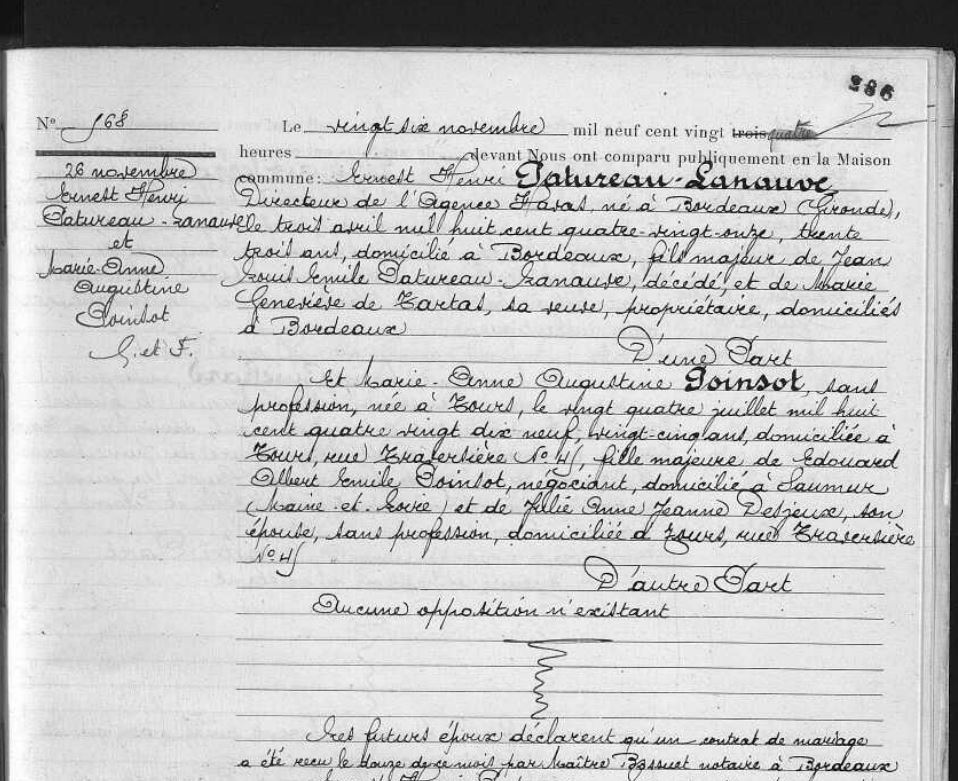 286
N° 568
Le vingt six novembre mil neuf cent vingt trois quatre
heures devant Nous ont comparu publiquement en la Maison
commune: Ernest Henri Patureau-Lanauve,
Directeur de l'Agence Havas, né à Bordeaux (Gironde),
le trois avril mil huit cent quatre-vingt-onze, trente
trois ans, domicilié à Bordeaux, fils majeur de Jean
Louis Emile Patureau-Lanauve, décédé, et de Marie
Geneviève de Tartas, sa veuve, propriétaire, domiciliés
à Bordeaux
D'une Part
Et Marie-Anne Augustine Poinsot, sans
profession, née à Tours, le vingt quatre juillet mil huit
cent quatre vingt dix neuf, vingt-cinq ans, domiciliée à
Tours, rue Traversière N° 45, fille majeure de Edouard
Albert Emile Poinsot, négociant, domicilié à Saumur
(Maine-et-Loire) et de Anne Jeanne Desjeux, son
épouse, sans profession, domiciliée à Tours, rue Traversière
N° 45
D'autre Part
Aucune opposition n'existant
Les futurs époux déclarent qu'un contrat de mariage
a été reçu le douze de ce mois par Maître Bossuet notaire à Bordeaux
26 novembre
Ernest Henri
Patureau-Lanauve
et
Marie-Anne
Augustine
Poinsot
G. et F.